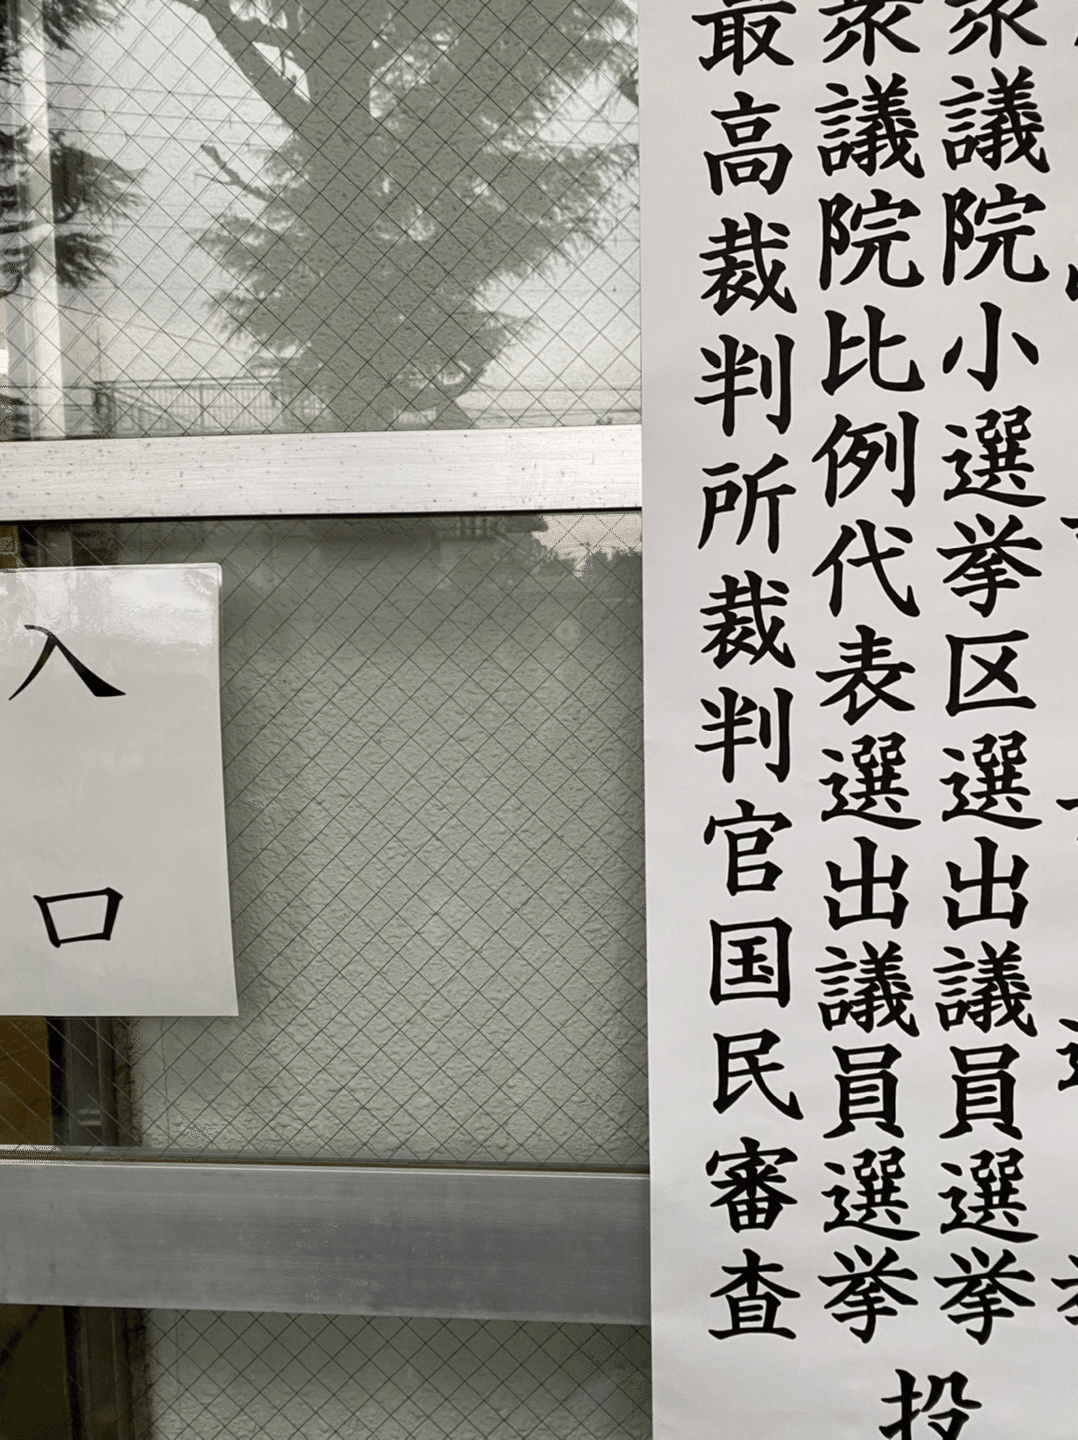 衆議院小選挙区選出議員選挙
衆議院比例代表選出議員選挙
最高裁判所裁判官国民審査
投
入口